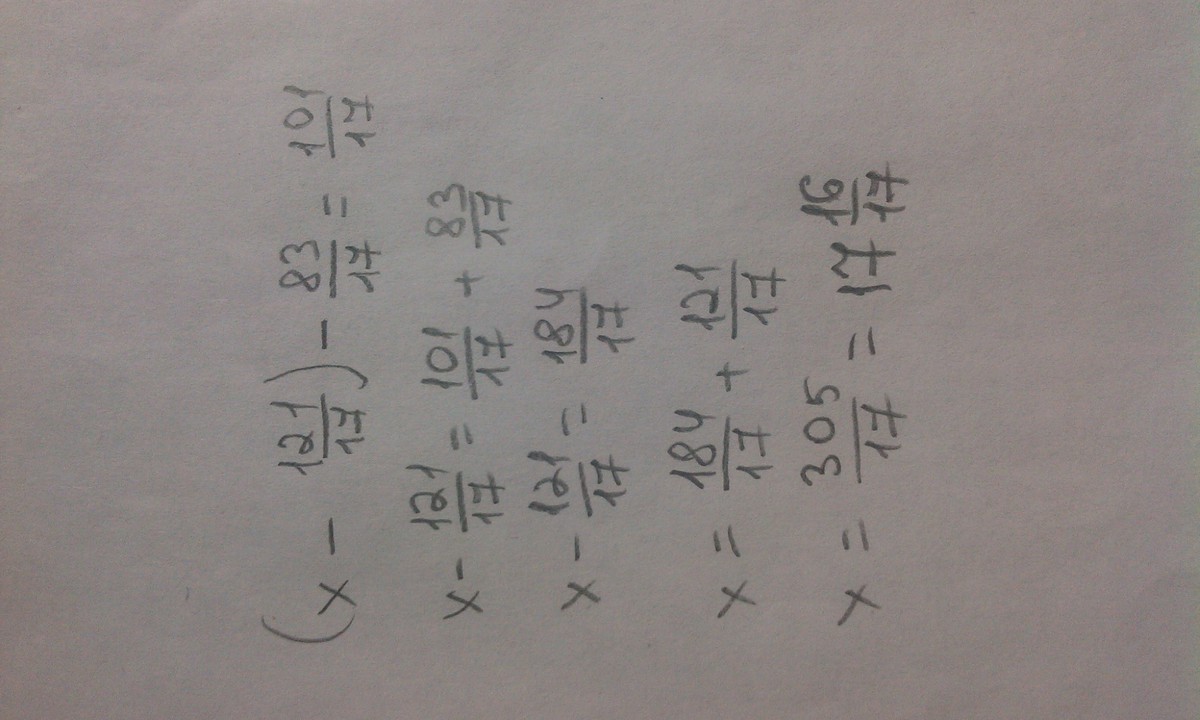 (x - 121/17) - 83/17 = 101/17
x - 121/17 = 101/17 + 83/17
x - 121/17 = 184/17
x = 184/17 + 121/17
x = 305/17 = 17 16/17